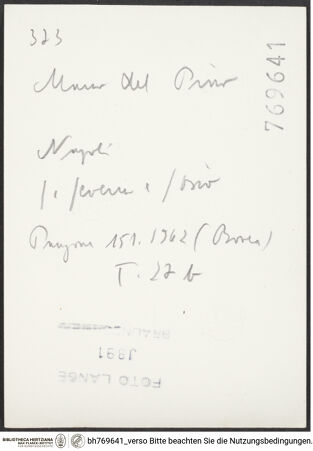 323
769641
Marco del Pino
Napoli
S. Severino e Sosio
Paragone 151. 1962 (Borea)
T. 27 b
BRAUN
1991
FOTO LANGE
BIBLIOTHECA HERTZIANA
MAX-PLANCK-INSTITUT
FÜR KUNSTGESCHICHTE
bh769641_verso Bitte beachten Sie die Nutzungsbedingungen.